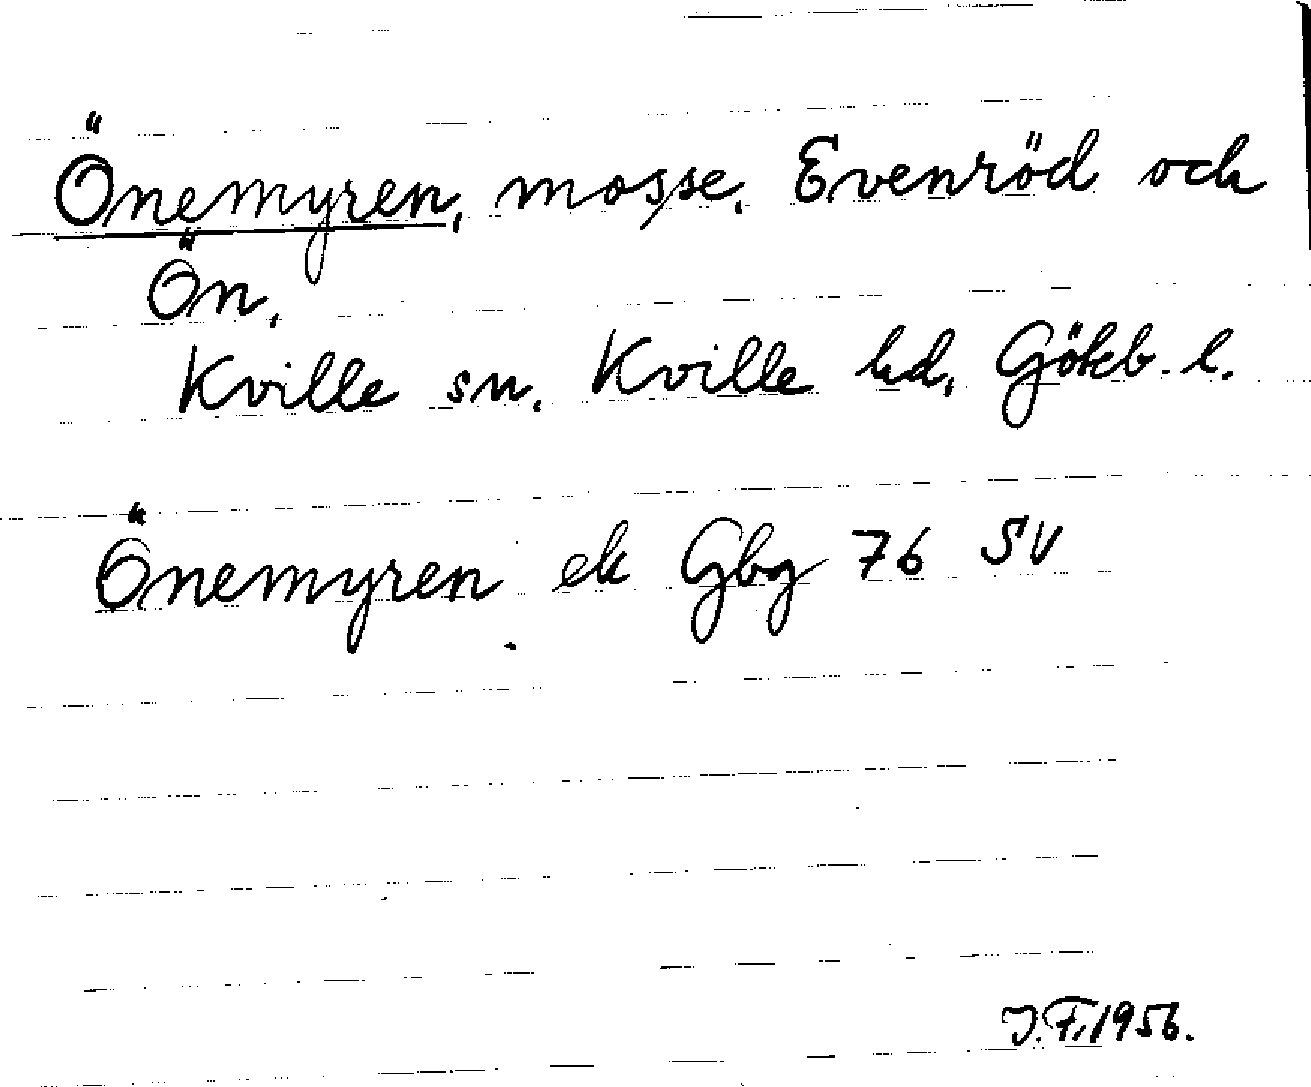 Önemyren, mosse. Evenröd och
Ön.
Kville sn. Kville hd, Göteb. l.
Önemyren ek Gbg 76 SV
J.F. 1956.